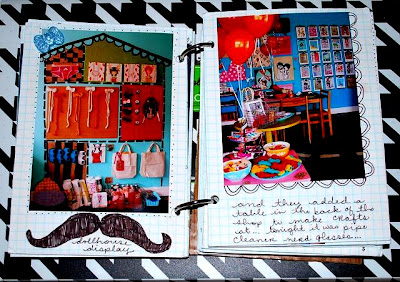 dollhouse
display
...and they added a
table in the back of the
shop to make crafts
at... tonight it was pipe
cleaner nerd glasses...